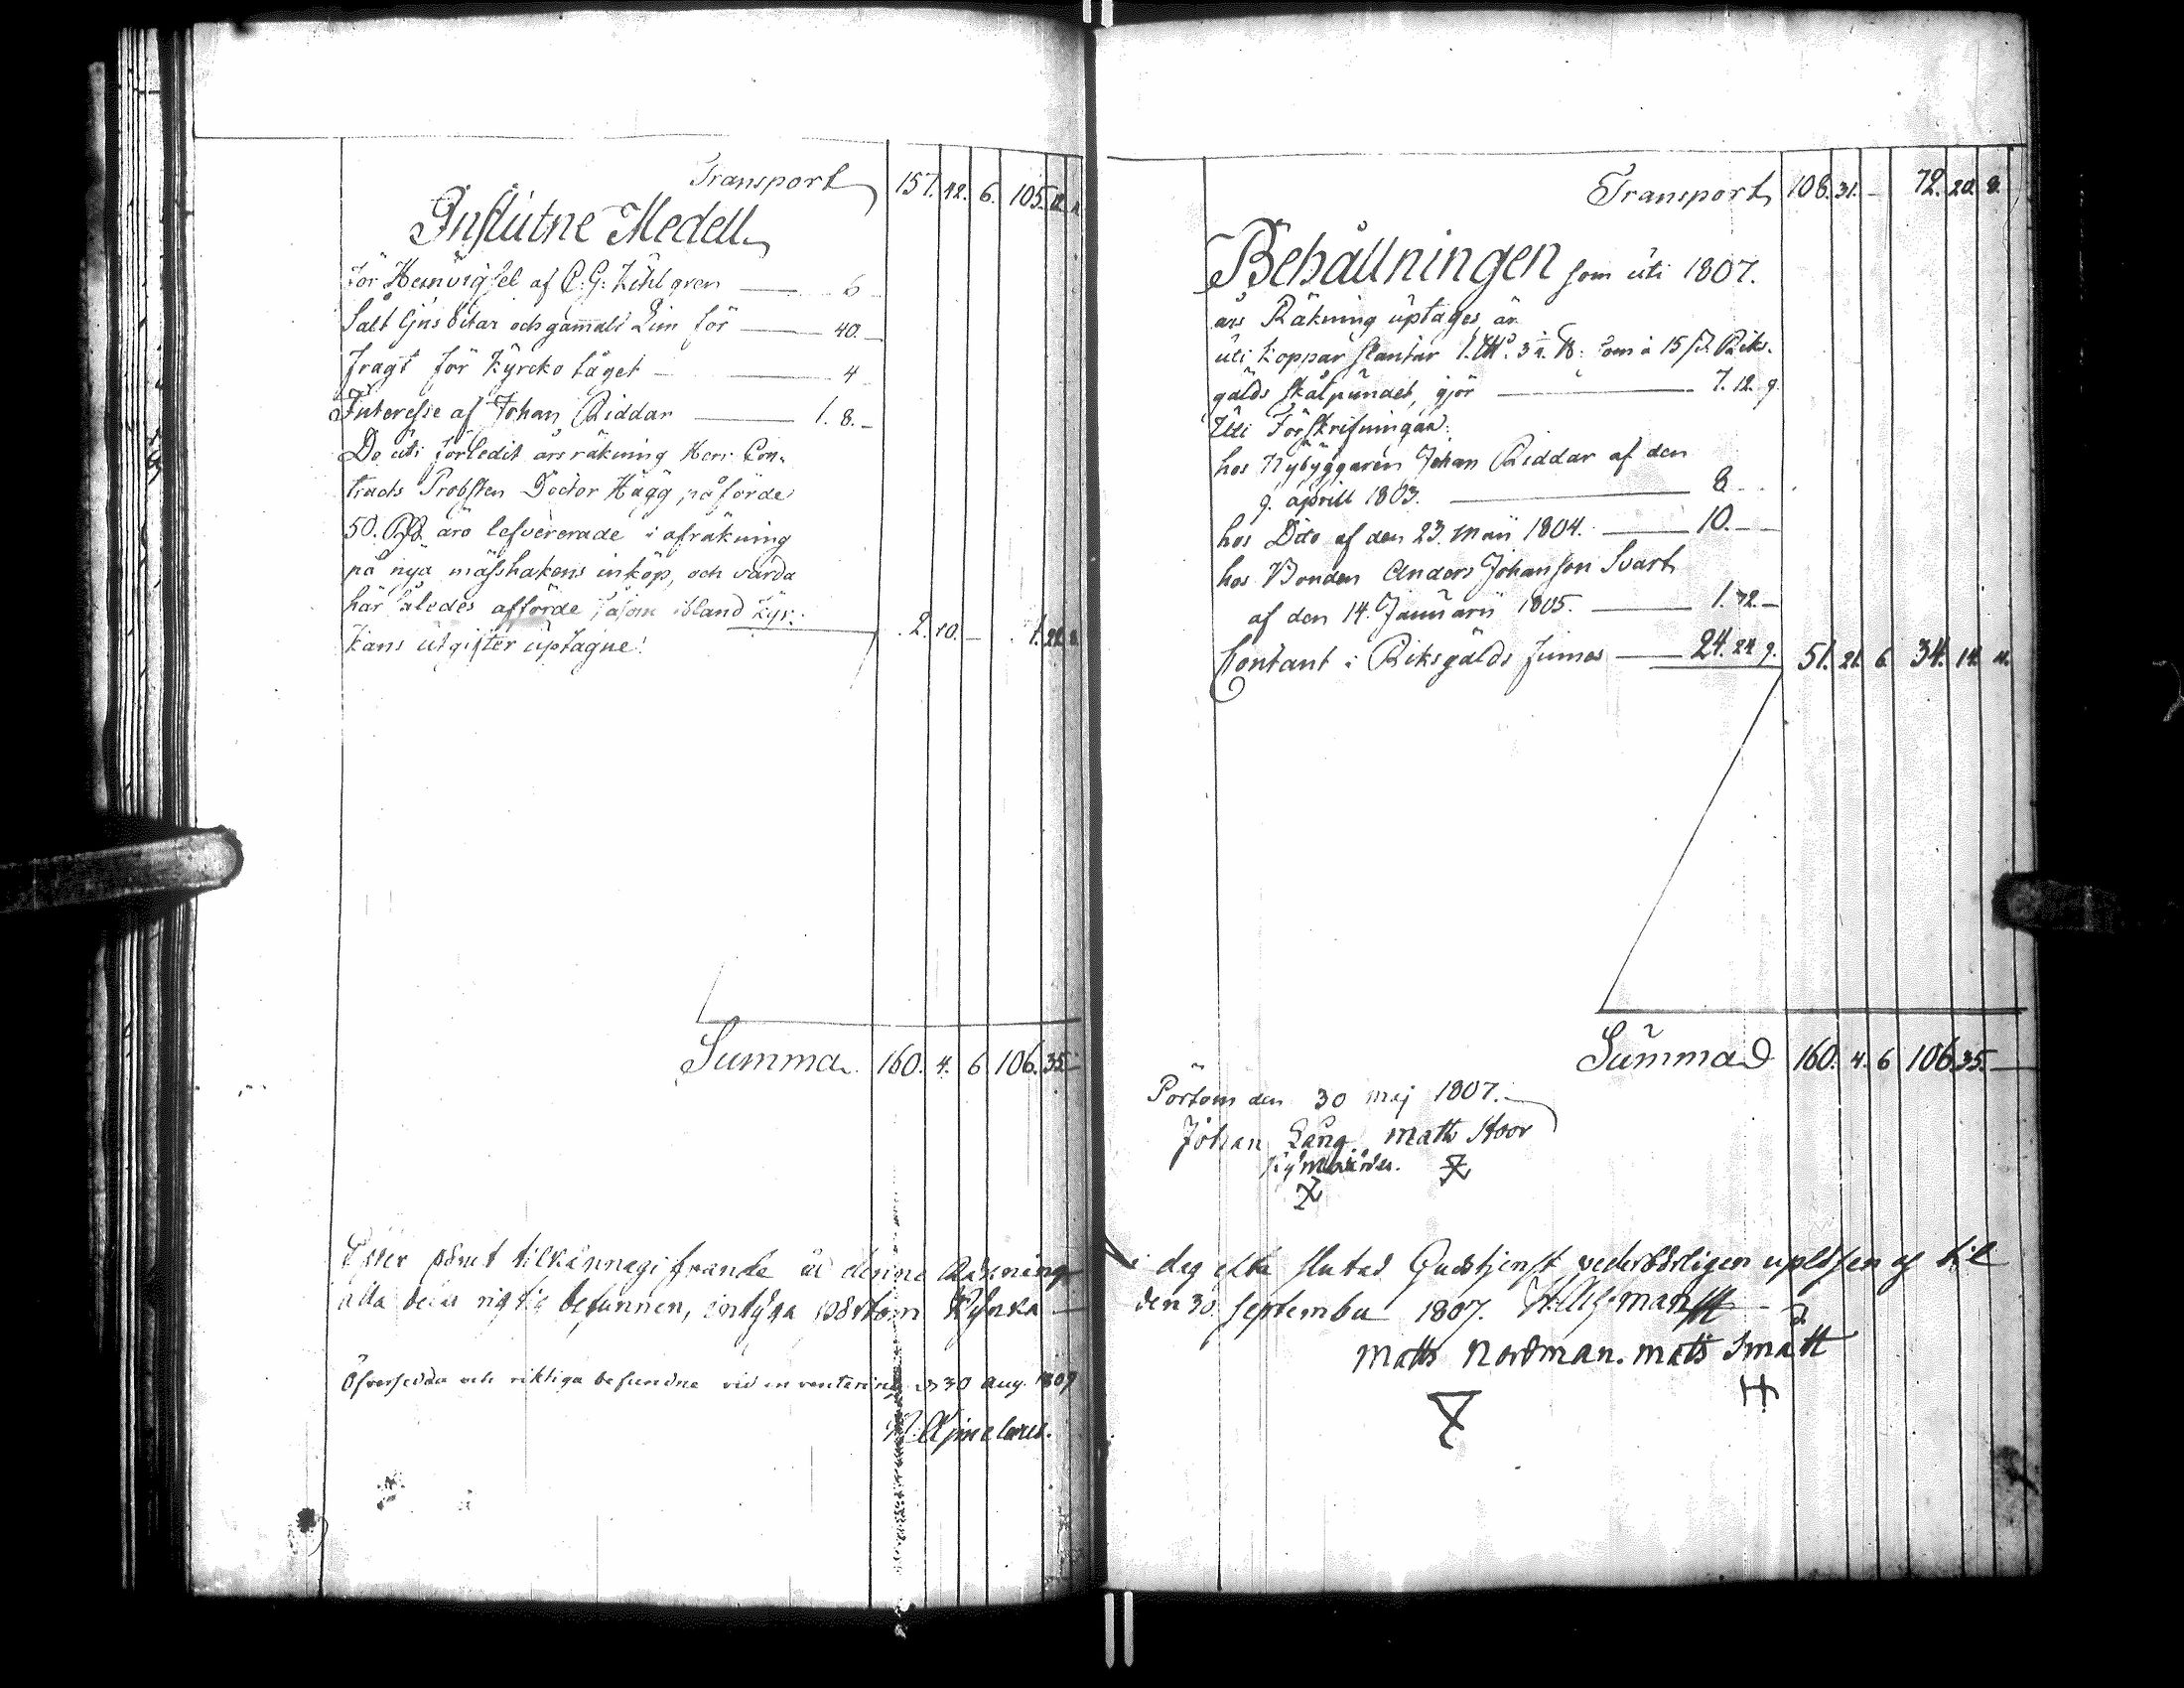 Transport 157. 42. 6. 105.
Influtne Medell
För Hemvigsel af C: G: — 6
Salt Ljus bitar och gammalt Lim för — 40. —
fragt för Kyrcko tåget — 4
Interesse af Johan Riddar — 1. 8. —
Do uti förledit års räkning Herr Con-
tracts Probsten Doctor Hägg påförde
50. äro lefvererade i afräkning
på nya mässhakens inköp, och varda
här således afförde, såsom ibland Kyr-
kans utgifter uptagne! 2. 10. — 1.
Summa 160. 4. 6 106. 35 —
Efter behörigt tilkännagifvande är denne Räkning
alla delar rigtig befunnen, intyga Pörtom Kyrka —
Öfversedda och riktiga befundne vid inventering d 30 Aug. 1809
Transport 108. 31. — 72. 20. 8.
Behållningen som uti 1807.
års Räkning uptages, är
uti Koppar slantar 1. 3 som à 15 Riks-
gälds skålpundet, gjör — 7. 12. 9.
Uti Förskrifningar:
hos Nybyggaren Johan Riddar af den
9. aprill 1803. — 8 —
hos Dito af den 23. Maii 1804. — 10. —
hos Bonden Anders Johansson Svart
af den 14. Januarii 1805. — 1. 32. —
Contant i Riksgälds — 24. 24 9. 51. 21. 6. 34. 14. 4.
Summa 160. 4. 6 106. 35. —
Pörtom den 30 maj 1807.
Johan Lång Matts Stoor
Kyrckovärdar.
i dag efter slutad Gudstjenst vederbörligen upläsen och til
den 30. September 1807.
Matts Nordman. Matts Smått